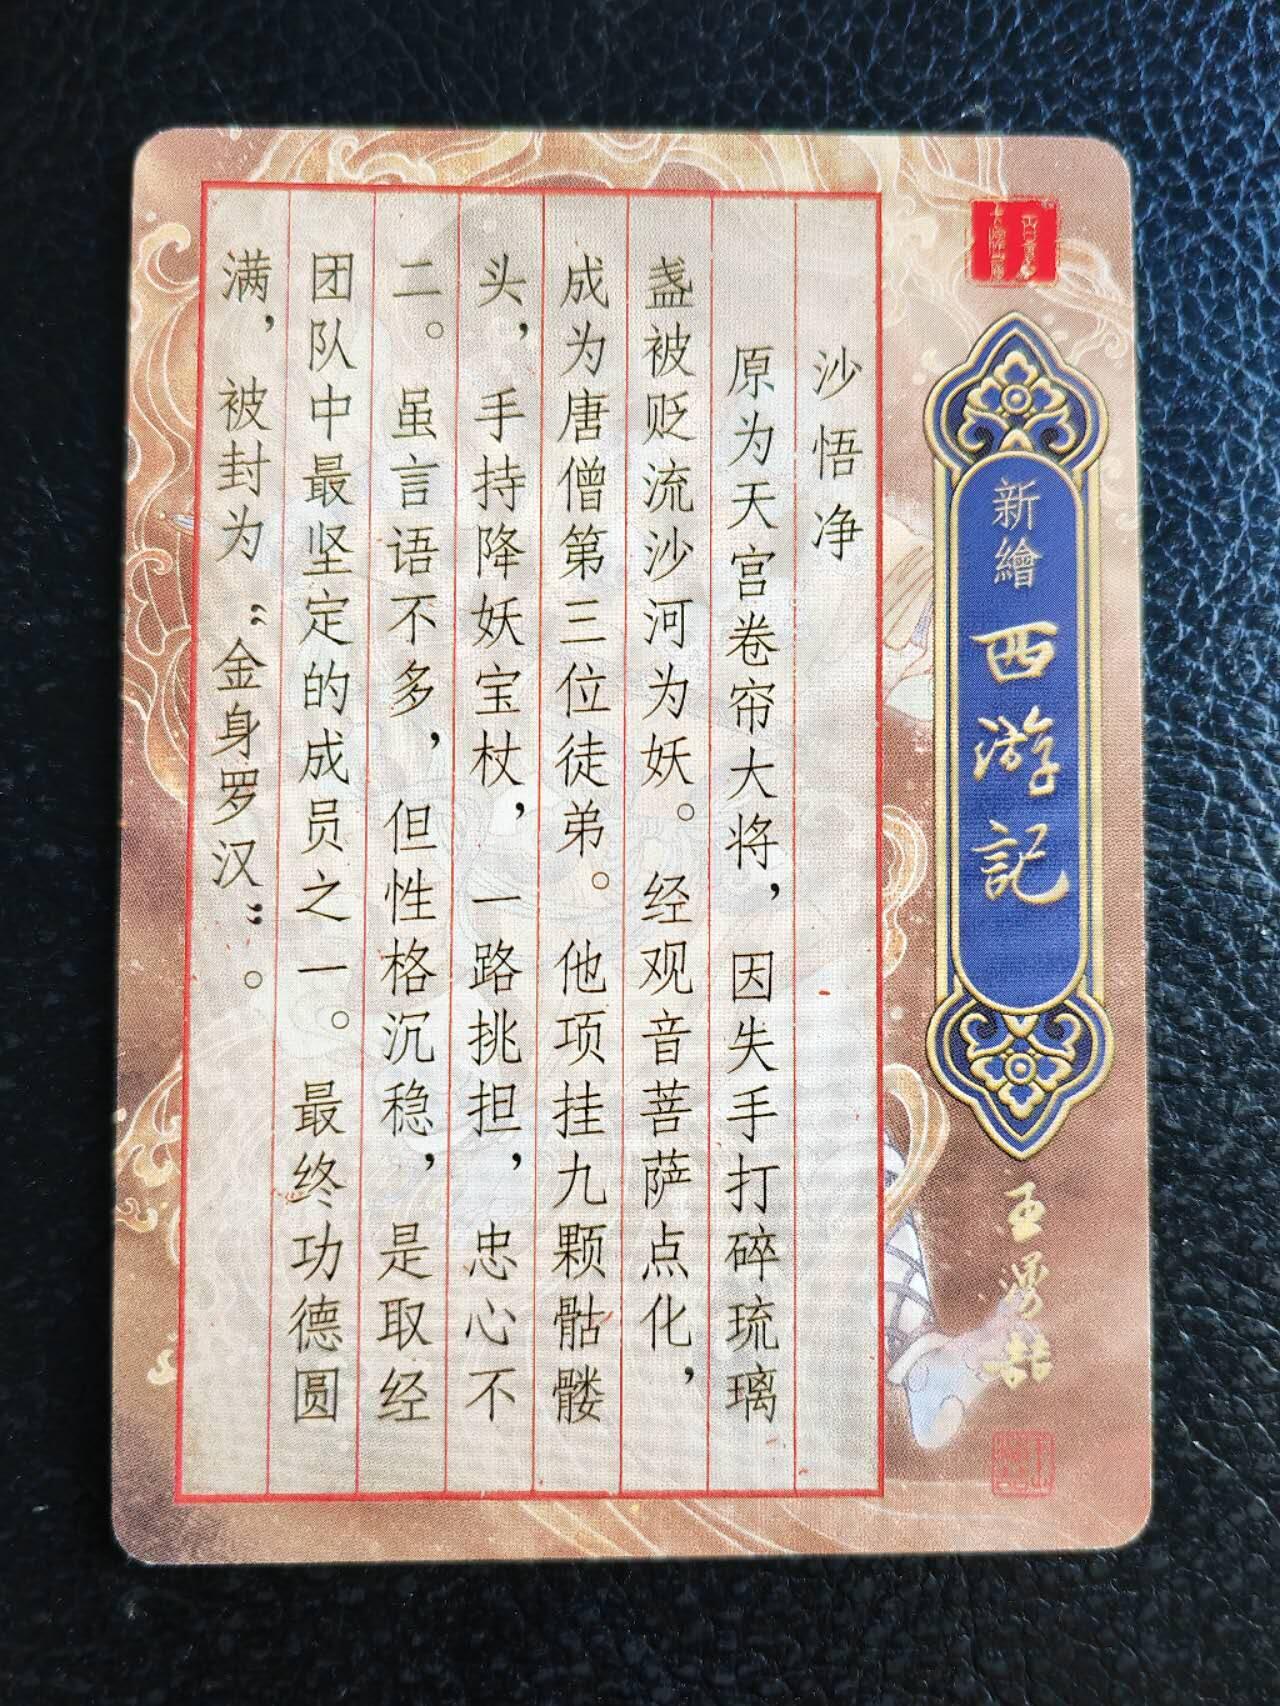 新繪西游記
沙悟净
原为天宫卷帘大将，因失手打碎琉璃
盏被贬流沙河为妖。经观音菩萨点化，
成为唐僧第三位徒弟。他项挂九颗骷髅
头，手持降妖宝杖，一路挑担，忠心不
二。虽言语不多，但性格沉稳，是取经
团队中最坚定的成员之一。最终功德圆
满，被封为“金身罗汉”。